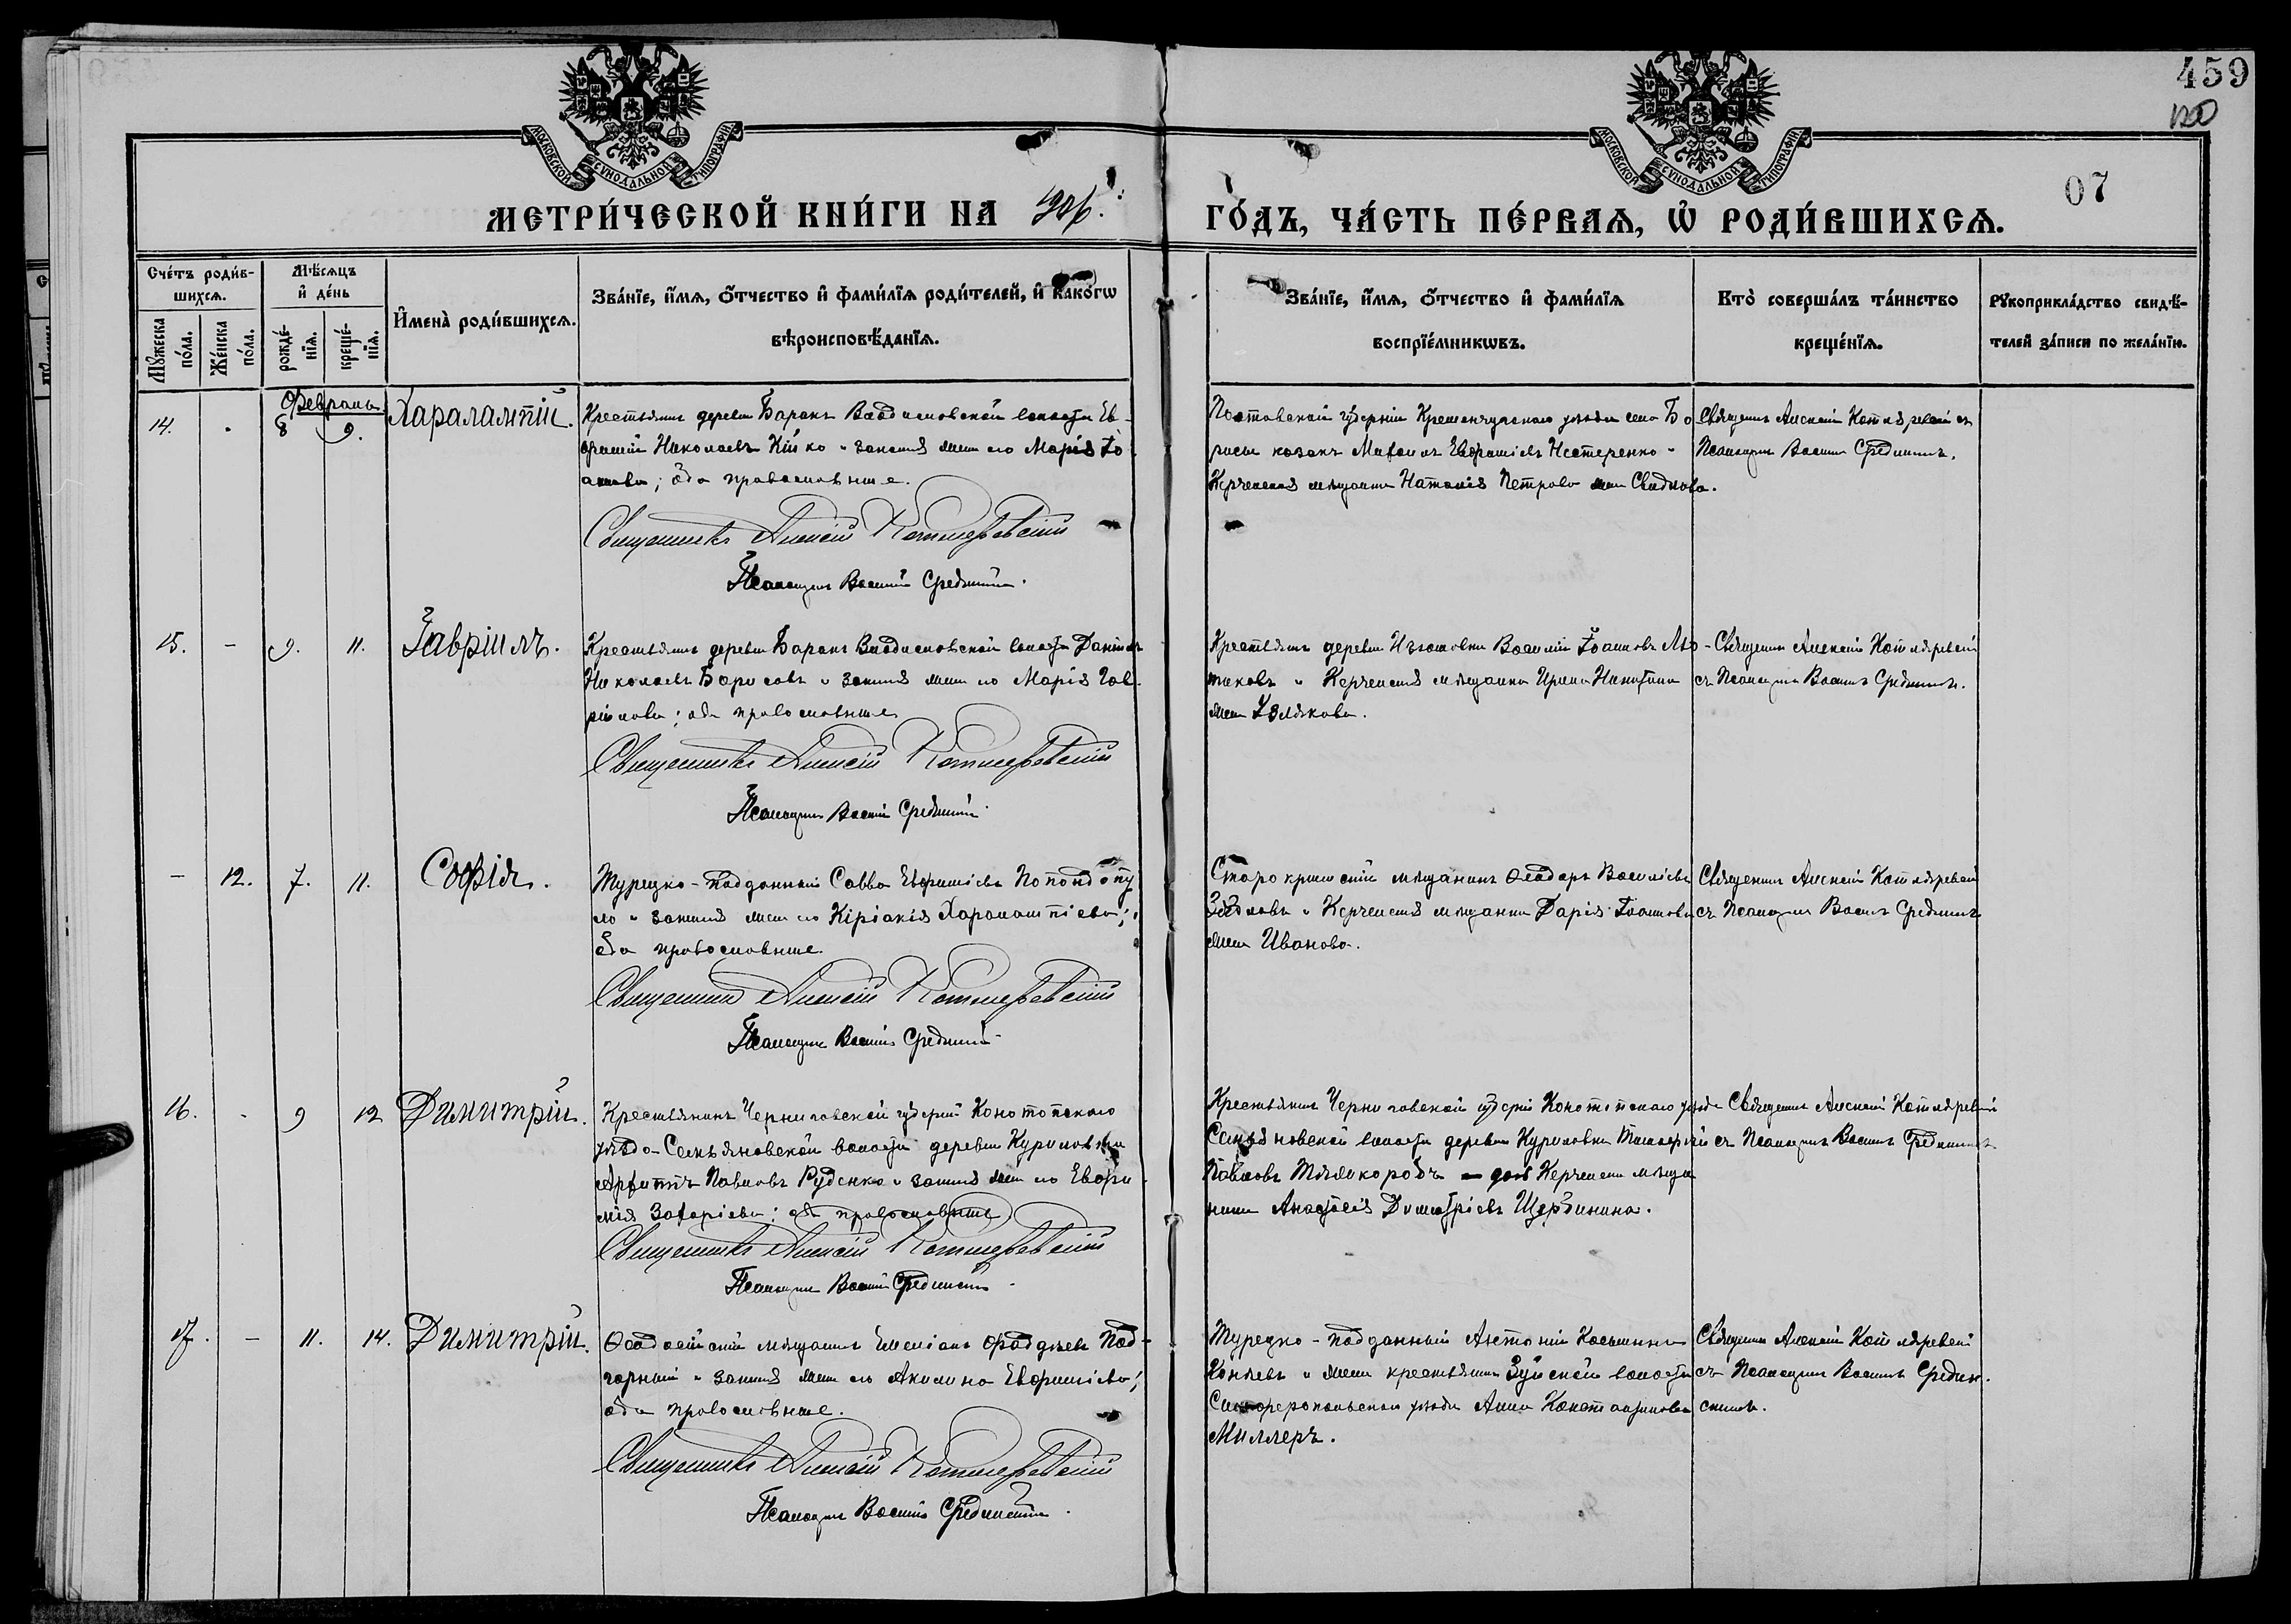 459
МОСКОВСКОЙ СѴНОДАЛЬНОЙ ТИПОГРАФІИ.
МОСКОВСКОЙ СѴНОДАЛЬНОЙ ТИПОГРАФІИ.
07
МЕТРИ́ЧЕСКОЙ КНИ́ГИ НА 1906.
ГО́ДЪ, ЧА́СТЬ ПЕ́РВАѦ, Ѡ҆ РОДИ́ВШИХСѦ.
Сче́тъ роди́в-
шихсѧ.
Мꙋ́жеска по́ла.
Же́нска по́ла.
Мѣ́сѧцъ и҆ де́нь
рожде́-нїѧ.
креще́-нїѧ.
И҆мена̀ роди́вшихсѧ.
Зва́нїе, и҆́мѧ, ѻ҆́тчество и҆ фами́лїѧ роди́телей, и҆ како́гѡ
вѣроисповѣ́данїѧ.
Зва́нїе, и҆́мѧ, ѻ҆́тчество и҆ фами́лїѧ
воспрїе́мникѡвъ.
Кто̀ соверша́лъ та́инство
креще́нїѧ.
Рꙋкоприкла́дство свидѣ́-
телей за́писи по жела́нїю.
Февраль
14. 8 9. Харалампій.
Крестьянинъ деревни Баракъ Владиславовской волости Ев-
фимій Николаевъ Кійко и законная жена его Марія Іо
аннова; оба православные.
Священникъ Алексій Котляревскій
Псаломщикъ Василій Срединскій.
Полтавской губерніи Кременчугскаго уѣзда села Бо
рисы козакъ Михаилъ Евфиміевъ Нестеренко и
Керченская мѣщанка Наталія Петрова
Священникъ Алексій Котляревскій съ
Псаломщикомъ Василіемъ Срединскимъ.
15. - 9. 11. Гавріилъ.
Крестьянинъ деревни Баракъ Владиславовской волости Даніилъ
Николаевъ Борисовъ и законная жена его Марія Гав
ріилова; оба православные
Священникъ Алексій Котляревскій
Псаломщикъ Василій Срединскій.
Крестьянинъ деревни Василій Іоанновъ
и Керченская мѣщанка Ирина Никитина
жена
Священникъ Алексій Котляревскій
съ Псаломщикомъ Василіемъ Срединскимъ.
- 12. 7. 11. Софія.
Турецко-подданный Савва Евфиміевъ Попондопу
ло и законная жена его Киріакія Харалампіева;
оба православные.
Священникъ Алексій Котляревскій
Псаломщикъ Василій Срединскій
Старокрымскій мѣщанинъ Ѳеодоръ Василіевъ
и Керченская мѣщанка Дарія Іоаннова
жена Иванова.
Священникъ Алексій Котляревскій
съ Псаломщикомъ Василіемъ Срединскимъ
16. - 9 12 Димитрій.
Крестьянинъ Черниговской губерніи Конотопскаго
уѣзда Семьяновской волости деревни Куриловки
Архиппъ Павловъ Руденко и законная жена его Евфи
мія Захаріева; оба православные
Священникъ Алексій Котляревскій
Псаломщикъ Василій Срединскій
Крестьянинъ Черниговской губерніи Конотопскаго уѣзда
Семьяновской волости деревни Куриловки Тимофей
Павловъ дочь Керченскаго мѣща
нина Анастасія Димитріевъ Щербинина.
Священникъ Алексій Котляревскій
съ Псаломщикомъ Василіемъ Срединскимъ
17. - 11. 14. Димитрій.
Ѳеодосійскій мѣщанинъ Емеліанъ Фаддеевъ Под-
горный и законная жена его Акилина Евфиміева;
оба православные.
Священникъ Алексій Котляревскій
Псаломщикъ Василій Срединскій.
Турецко-подданный Антоній Косьминъ
и жена крестьянина Зуйской волости
Симферопольскаго уѣзда Анна Константинова
Миллеръ.
Священникъ Алексій Котляревскій
съ Псаломщикомъ Василіемъ Средин-
скимъ.